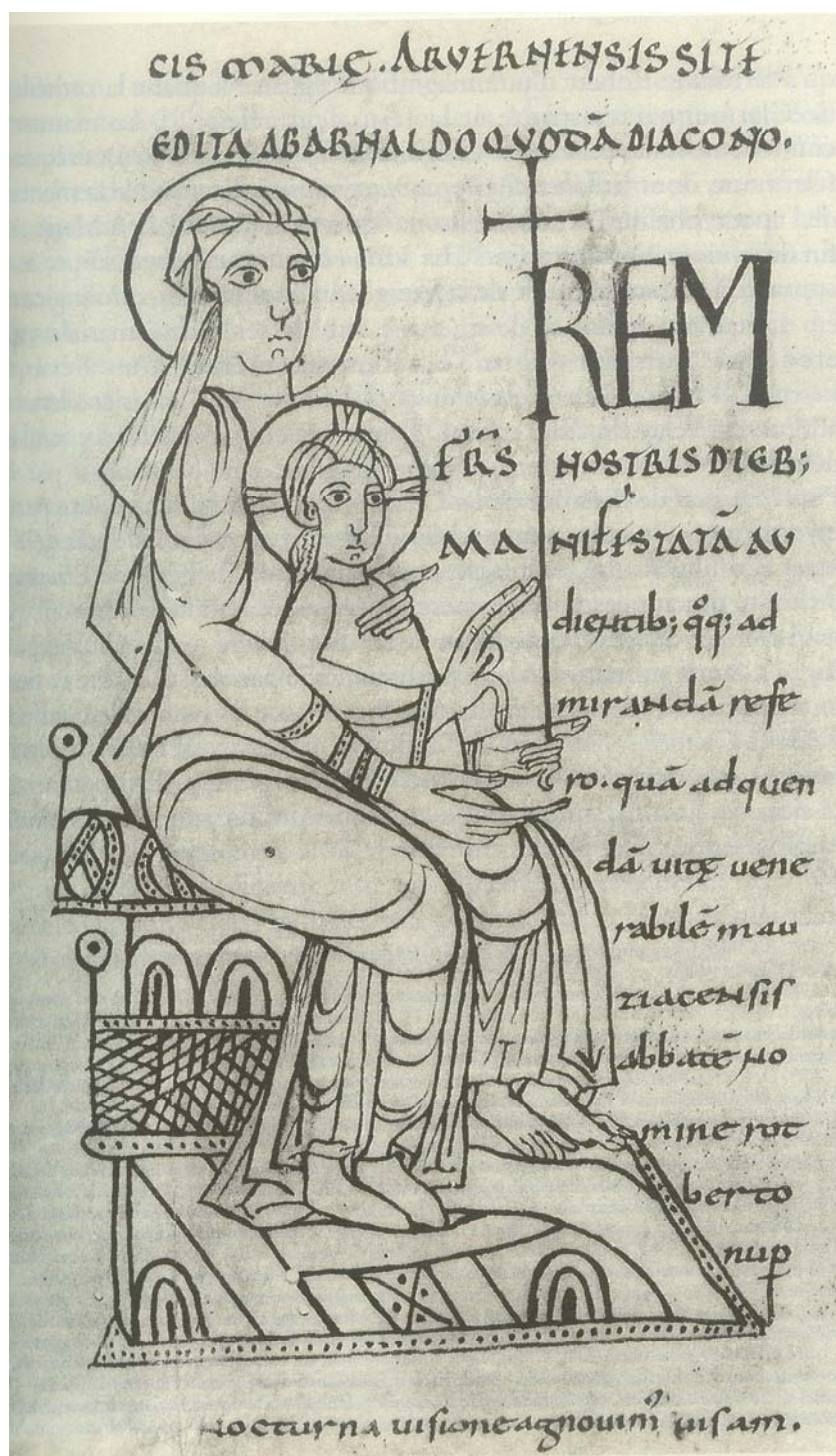 CIS MARIĘ. ARVERNENSIS SITE
EDITA AB ARNALDO QVODĀ DIACONO.
REM
FR̄S NOSTRIS DIEB;
MANIFESTATĀ AV
dientib; q̊q; ad
mirandā refe
ro. quā ad quen
dā uitę uene
rabilē mau
ziacensis
abbatē no
mine rot
berto
nup
nocturna uisione agnouim᾿ uisam.